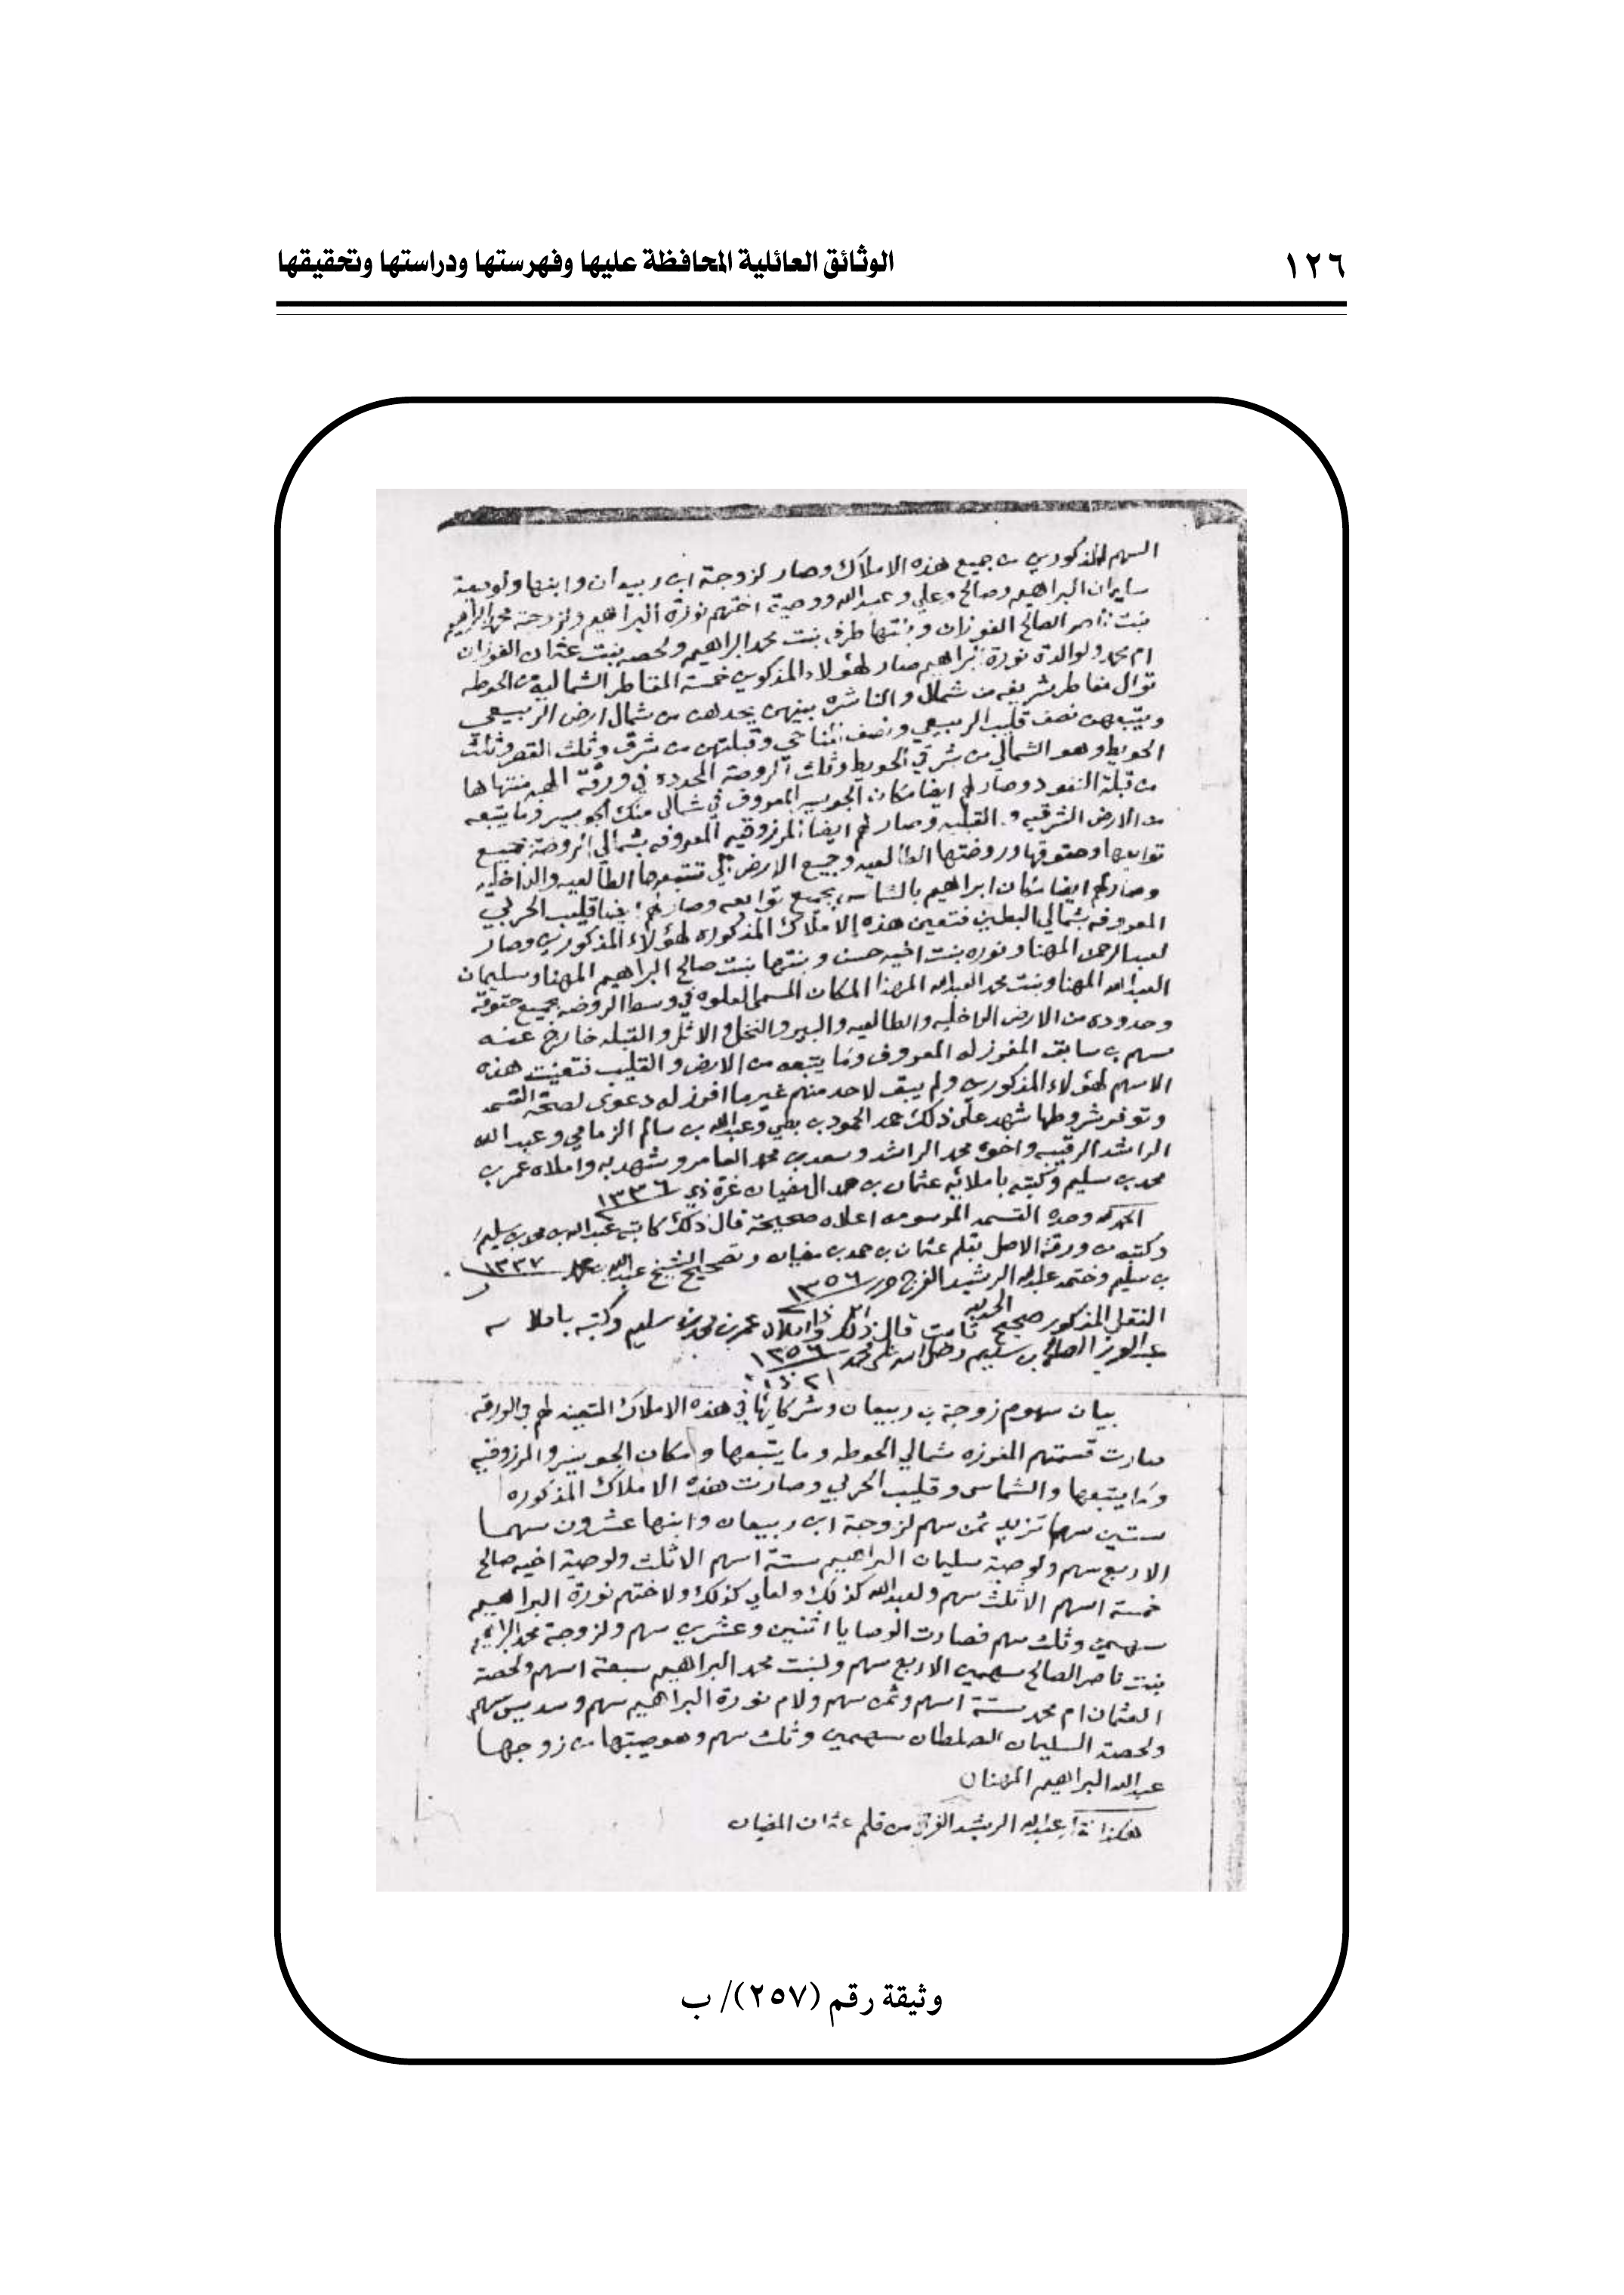 ١٢٦
الوثائق العائلية المحافظة عليها وفهرستها ودراستها وتحقيقها
السهم المذكورين من جميع هذه الاملاك وصار لزوجة ابن ربيعان وابنها ولوصية
البراهيم وصالح وعلي وعبدالله ووصية اختهم نورة البراهيم ولزوجة محمد البراهيم
بنت ناصر الصالح الفوزان وبنتها طرفه بنت محمد البراهيم ولحصه بنت عثمان الفوزان
ام محمد ولوالدة نورة ابراهيم صار لهؤلاء المذكورين خمسة المقاطر الشمالية من الحوطه
توال مقاطر شريفه من شمال والناشره بينهن يحدهن من شمال ارض الربيعي
ويتبعهن نصف قليب الربيعي ونصف المناحي وقبلتهن من شرق وثلث القصر وثلث
الحويط وهو الشمالي من شرقي الحويط وثلث الروضة المحدودة في ورقة منتهاها
من قبلة النفود وصار لهم ايضا مكان الجوبير المعروف في شمالي ملك الجوبير وما يتبعه
من الارض الشرقيه و القبليه وصار لهم ايضا المرزوقيه المعروفه بشمالي الروضة بجميع
توابعها وحقوقها وروضتها الطالعيه وجميع الارض التي تتبعها الطالعيه والداخليه
وصار لهم ايضا مكان ابراهيم بالشماس بجميع توابعه وصار لهم ايضا قليب الحربي
المعروفه بشمالي البطين فتعين هذه الاملاك المذكوره لهؤلاء المذكورين وصار
لعبدالرحمن المهنا ونوره بنت اخيه حسن وبنتها بنت صالح البراهيم المهنا وسليمان
العبدالله المهنا وبنت محمد العبدالله المهنا المكان المسمى العلوه في وسط الروضه بجميع حقوقه
وحدوده من الارض الداخليه والطالعيه والبير والنخل والاثل والقبله خارج عنه
سهم بن سابق المفوز له المعروف وما يتبعه من الارض والقليب فتعينت هذه
الاسهم لهؤلاء المذكورين ولم يبق لاحد منهم غير ما افرز له دعوى لصحة القسمه
وتوفر شروطها شهد على ذلك حمد الحمود بن بطي وعبدالله بن سالم الزمامي وعبدالله
الراشد الرقيبه واخوه محمد الراشد وسعد بن محمد العامر وشهد به واملاه عمر بن
محمد بن سليم وكتبه باملائه عثمان بن حمد المضيان غرة ذي ١٣٣٦
الحمد لله وحده القسمه المرسومه اعلاه صحيحة قال ذلك كاتبه عبدالله بن محمد بن سليم
وكتبه من ورقة الاصل بقلم عثمان بن حمد بن مضيان وتصحيح الشيخ عبدالله بن محمد ١٣٣٧
بن سليم وختمه عبدالله الرشيد الفرج حرر ١٣٥٦
الحمد لله
النقل المذكور صحيح ثابت قال ذلك واملاه عمر بن محمد بن سليم وكتبه باملائه
عبدالعزيز الصالح بن سليم وصلى الله على محمد ١٣٥٦
بيان سهوم زوجة بن ربيعان وشركائها في هذه الاملاك المتعينه لهم في الورقه
صارت قسمتهم المفوزه شمالي الحوطه وما يتبعها ومكان الجوبير والمرزوقيه
وما يتبعها والشماس وقليب الحربي وصارت هذه الاملاك المذكوره
ستين سهما تزيد ثمن سهم لزوجة ابن ربيعان وابنها عشرون سهما
الا ربع سهم ولوصية سليمان البراهيم ستة اسهم الا ثلث ولوصية اخيه صالح
خمسة اسهم الا ثلث سهم ولعبدالله كذلك ولعلي كذلك ولاختهم نورة البراهيم
سهمين وثلث سهم فصارت الوصايا اثنين وعشرين سهم ولزوجة محمد البراهيم
بنت ناصر الصالح سهمين الا ربع سهم ولبنت محمد البراهيم سبعة اسهم ولحصة
العثمان ام محمد ستة اسهم وثمن سهم ولام نورة البراهيم سهم وسديس سهم
ولحصة السليمان الصلطان سهمين وثلث سهم وهو صيبتها من زوجها
عبدالله البراهيم المهنان
هكذا عبدالله الرشيد الفرج من قلم عثمان المضيان
وثيقة رقم (٢٥٧)/ ب